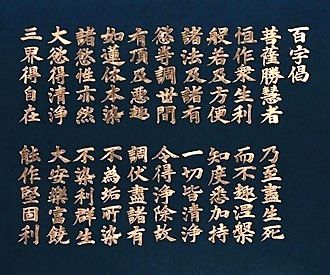 百字偈
菩薩勝慧者 乃至盡生死
恒作衆生利 而不趣涅槃
般若及方便 智度悉加持
諸法及諸有 一切皆清淨
慾等調世間 令得淨除故
有頂及惡趣 調伏盡諸有
如蓮体本染 不為垢所染
諸慾性亦然 不染利群生
大慾得清淨 大安樂富饒
三界得自在 能作堅固利